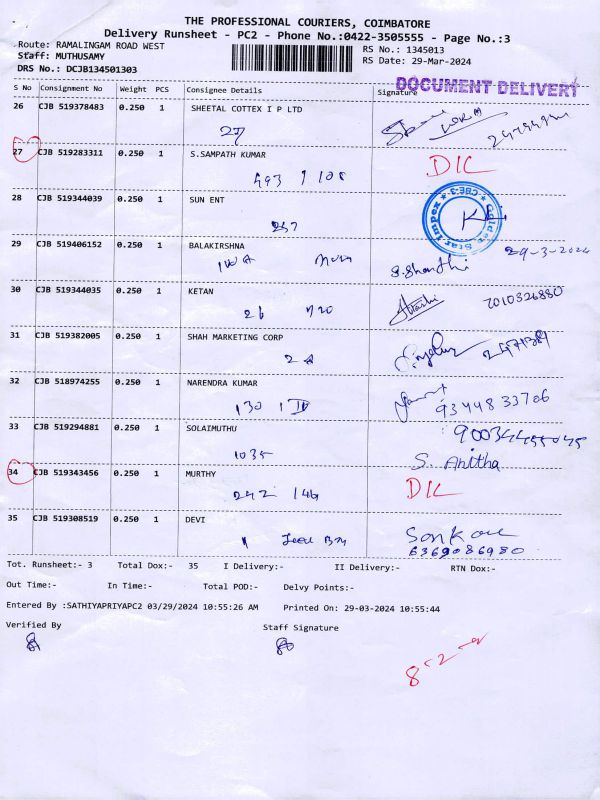 THE PROFESSIONAL COURIERS, COIMBATORE
Delivery Runsheet - PC2 - Phone No.:0422-3505555 - Page No.:3
Route: RAMALINGAM ROAD WEST RS No.: 1345013
Staff: MUTHUSAMY RS Date: 29-Mar-2024
DRS No.: DCJB134501303
DOCUMENT DELIVERY
S No Consignment No Weight PCS Consignee Details Signature
26 CJB 519378483 0.250 1 SHEETAL COTTEX I P LTD
27
27 CJB 519283311 0.250 1 S.SAMPATH KUMAR DIL
493 1 108
28 CJB 519344039 0.250 1 SUN ENT
Golden Star Impex CBE-3
237
29 CJB 519406152 0.250 1 BALAKIRSHNA 29-3-2024
S. Shanthi
30 CJB 519344035 0.250 1 KETAN 7010326880
26
31 CJB 519382005 0.250 1 SHAH MARKETING CORP
32 CJB 518974255 0.250 1 NARENDRA KUMAR
130 1 9344833706
33 CJB 519294881 0.250 1 SOLAIMUTHU
1035 S. Anitha
34 CJB 519343456 0.250 1 MURTHY DIL
242 146
35 CJB 519308519 0.250 1 DEVI
6369086980
Tot. Runsheet:- 3 Total Dox:- 35 I Delivery:- II Delivery:- RTN Dox:-
Out Time:- In Time:- Total POD:- Delvy Points:-
Entered By :SATHIYAPRIYAPC2 03/29/2024 10:55:26 AM Printed On: 29-03-2024 10:55:44
Verified By Staff Signature
8-2-